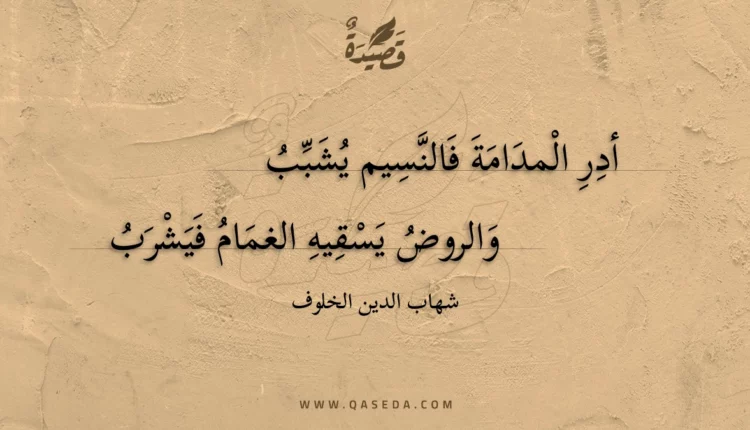 قَصِيدَةٌ
أدِرِ الْمدَامَةَ فَالنَّسِيم يُشَبِّبُ
وَالروضُ يَسْقِيهِ الغمَامُ فَيَشْرَبُ
شهاب الدين الخلوف
WWW.QASEDA.COM